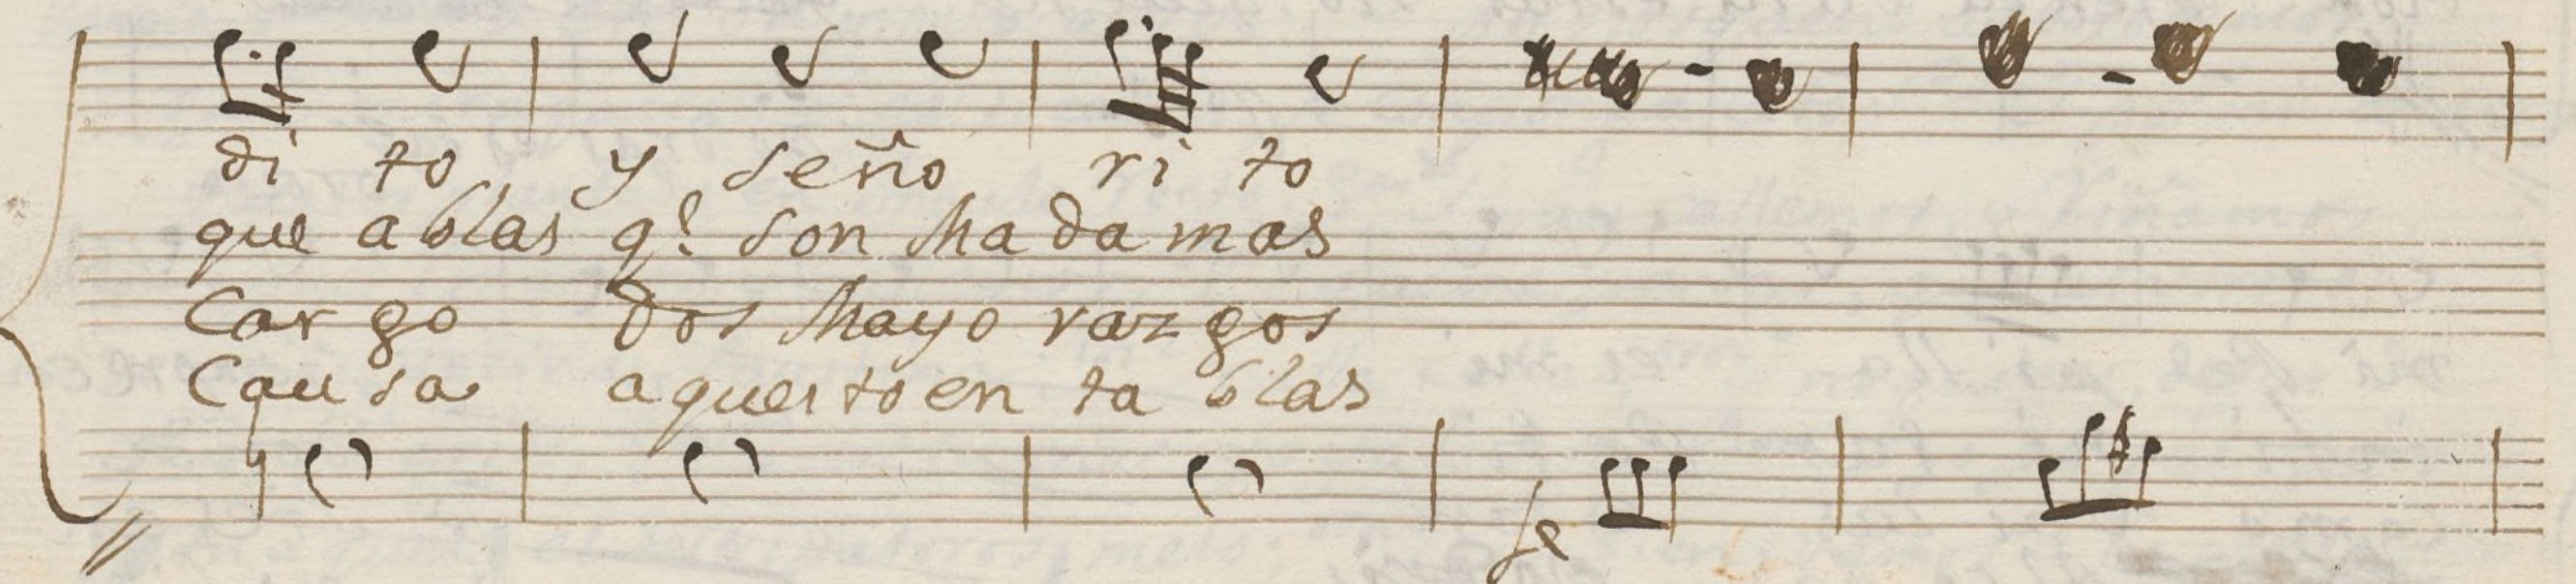 di to y seño ri to
que ablas q.e son Madamas
Cargo dos Mayorazgos
Causa aquesto en tablas
fe